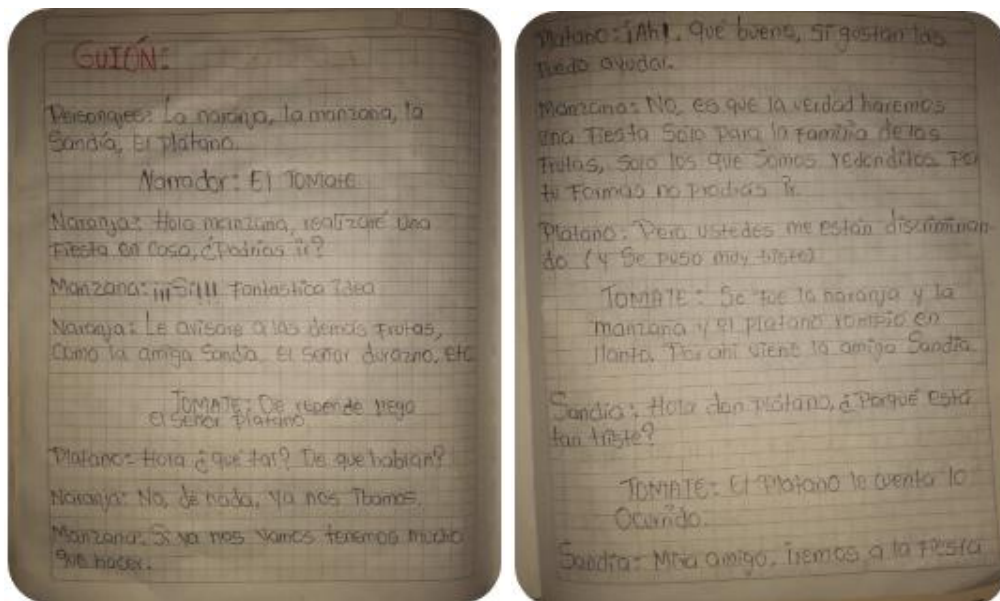 GUIÓN:
Personajes: La naranja, la manzana, la
Sandía, El plátano.
Narrador: El TOMATE
Naranja: Hola manzana, realizaré una
Fiesta en casa, ¿Podrías ir?
Manzana: ¡¡¡Sí!!! Fantastica idea
Naranja: Le avisare a las demás Frutas,
Como la amiga Sandía, El señor durazno, etc
TOMATE: De repende llego
el señor Plátano
Platano: Hola ¿que tal? De que hablan?
Naranja: No, de nada, Ya nos Ibamos.
Manzana: Si ya nos vamos tenemos mucho
que hacer.
Platano: ¡Ah!. que bueno, si gustan las
Puedo ayudar.
Manzana: No, es que la verdad haremos
una Fiesta Solo Para la Familia de las
Frutas, Solo los que Somos redonditos Por
tu Formas no Prodías Ir.
Platano: Pero ustedes me están discriminan-
do (y Se Puso muy triste)
TOMATE: Se fue la naranja y la
manzana y el Platano rompio en
llanto. Por ahí viene la amiga Sandía.
Sandía: Hola don Plátano, ¿Porqué está
tan triste?
TOMATE: El Platano le cuenta lo
Ocurrido.
Sandía: Mira amigo, Iremos a la Fiesta